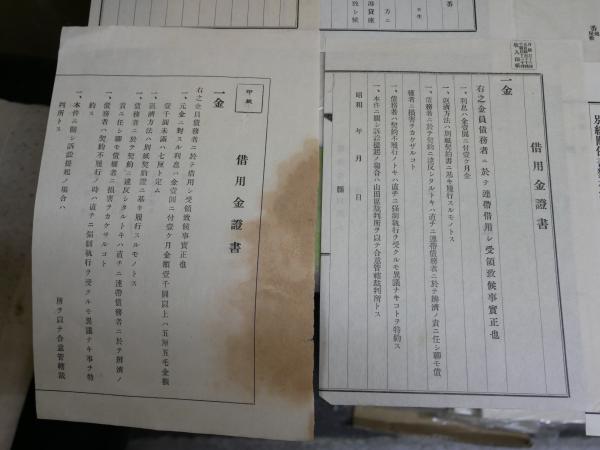 借用金證書
印紙
一金
右之金員債務者ニ於テ借用シ受領致候事實正也
一、元金ニ對スル利息ハ金壹圓ニ付壹ケ月金額壹千圓以上ハ五厘五毛金額
壹千圓未滿ハ七厘ト定ム
一、返濟方法ハ別紙契約證ニ基キ履行スルモノトス
一、債務者ニ於テ契約ニ違反シタルトキハ直チニ連帶債務者ニ於テ辨濟ノ
責ニ任シ聊モ債權者ニ損害ヲカケザルコト
一、債務者ハ契約不履行ノ時ハ直チニ强制執行ヲ受クルモ異議ナキ事ヲ特
約ス
一、本件ニ關シ訴訟提起ノ場合ハ
所ヲ以テ合意管轄裁
判所トス
借用金證書
一金
右之金員債務者ニ於テ連帶借用シ受領致候事實正也
一、利息ハ金壹圓ニ付壹ケ月金
一、返濟方法ハ別紙契約書ニ基キ履行スルモノトス
一、債務者ニ於テ契約ニ違反シタルトキハ直チニ連帶債務者ニ於テ辨濟ノ責ニ任シ聊モ債
權者ニ損害ヲカケザルコト
一、債務者ハ契約不履行ノトキハ直チニ强制執行ヲ受クルモ異議ナキコトヲ特約ス
一、本件ニ關シ訴訟提起ノ場合ハ山田區裁判所ヲ以テ合意管轄裁判所トス
昭和 年 月 日